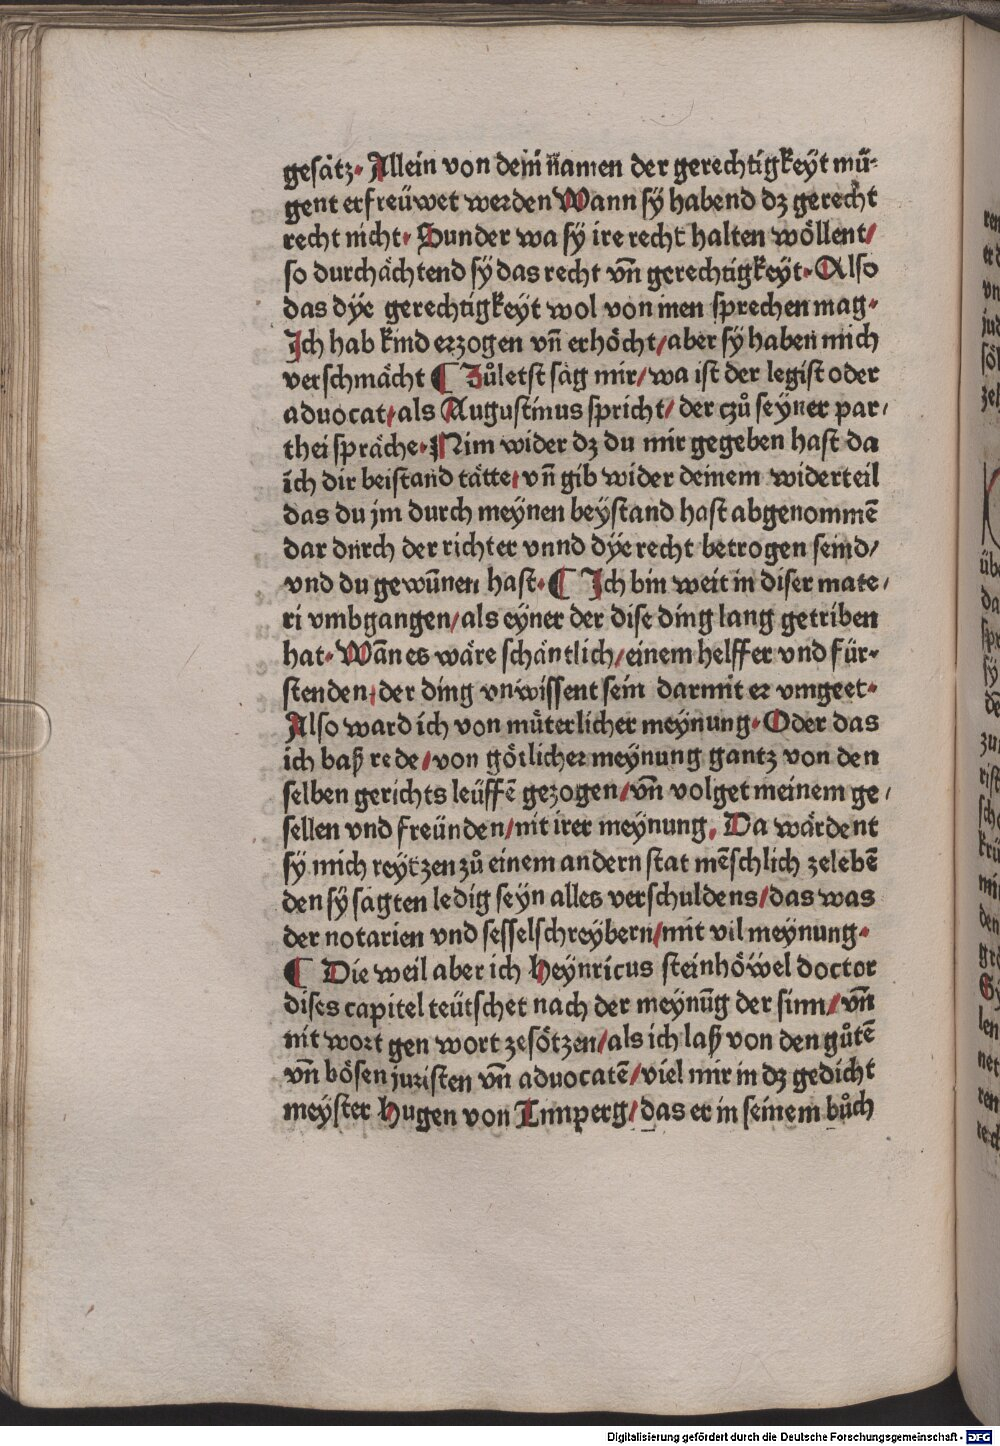 gesätz. Allein von dem namen der gerechtigkeÿt mü-
gent erfreüwet werden Wann sÿ habend dz gerecht
recht nicht. Sunder wa sÿ ire recht halten wöllent/
so durchächtend sÿ das recht vn̄ gerechtigkeÿt. Also
das dÿe gerechtigkeÿt wol von inen sprechen mag.
Ich hab kind erzogen vn̄ erhöcht/ aber sÿ haben mich
verschmächt ¶ Zůletst sag mir/ wa ist der legist oder
aduocat/ als Augustinus spricht/ der czů seÿner par/
thei spräche. Nim wider dz du mir gegeben hast da
ich dir beistand tätte/ vn̄ gib wider deinem widerteil
das du jm durch meÿnen beÿstand hast abgenommē
dar durch der richter vnnd dÿe recht betrogen seind/
vnd du gewūnen hast. ¶ Ich bin weit in diser mate/
ri vmbgangen/ als eÿner der dise ding lang getriben
hat. Wān es wäre schäntlich/ einem helffer vnd für-
stenden/ der ding vnwissent sein darmit er vmgeet.
Also ward ich von müterlicher meÿnung. Oder das
ich baß rede/ von götlicher meÿnung gantz von den
selben gerichts leüffē gezogen/ vn̄ volget meinem ge/
sellen vnd freünden/ nit irer meÿnung, Da wärdent
sÿ mich reÿtzen zů einem andern stat mēschlich zelebē
den sÿ sagten ledig seÿn alles verschuldens/ das was
der notarien vnd sesselschreÿbern/ mit vil meÿnung.
¶ Die weil aber ich Heÿnricus steinhöwel doctor
dises capitel teütschet nach der meÿnūg der sinn/ vn̄
nit wort gen wort zesötzen/ als ich laß von den gůtē
vn̄ bösen juristen vn̄ aduocatē/ viel mir in dz gedicht
meÿster Hugen von Trimperg/ das er in seinem bůch
Digitalisierung gefördert durch die Deutsche Forschungsgemeinschaft - DFG